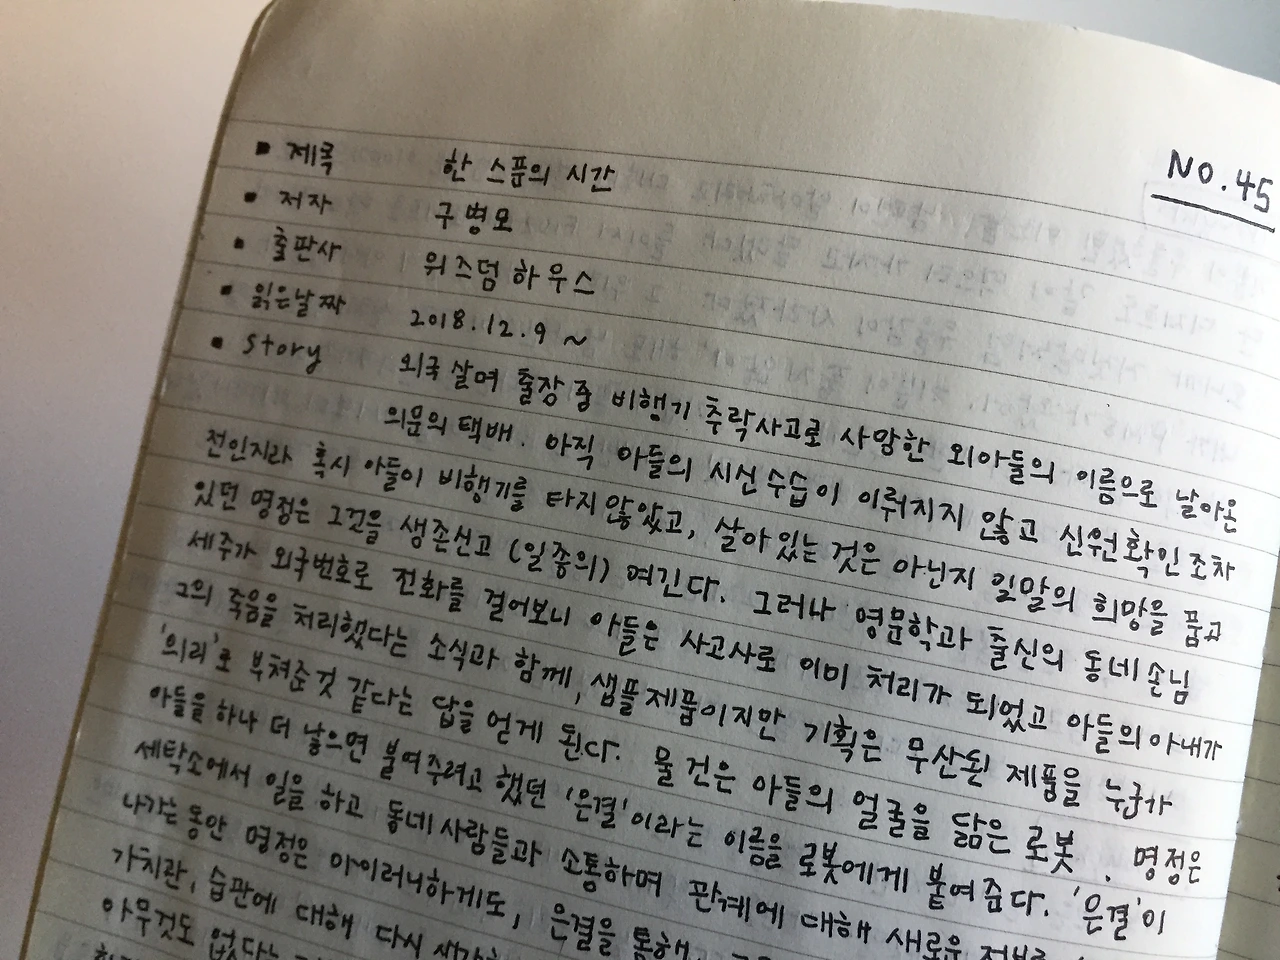 NO.45
▪ 제목 한 스푼의 시간
▪ 저자 구병모
▪ 출판사 위즈덤하우스
▪ 읽은날짜 2018.12.9 ~
▪ story 외국 살며 출장 중 비행기 추락사고로 사망한 외아들의 이름으로 날아온
의문의 택배. 아직 아들의 시신수습이 이뤄지지 않고 신원확인조차
전인지라 혹시 아들이 비행기를 타지 않았고, 살아있는 것은 아닌지 일말의 희망을 품고
있던 명정은 그것을 생존선고 (일종의) 여긴다. 그러나 영문학과 출신의 동네손님
세주가 외국번호로 전화를 걸어보니 아들은 사고사로 이미 처리가 되었고 아들의 아내가
그의 죽음을 처리했다는 소식과 함께, 샘플제품이지만 기획은 무산된 제품을 누군가
'의리'로 부쳐준것 같다는 답을 얻게 된다. 물건은 아들의 얼굴을 닮은 로봇. 명정은
아들을 하나 더 낳으면 붙여주려고 했던 '은결'이라는 이름을 로봇에게 붙여준다. '은결'이
세탁소에서 일을 하고 동네사람들과 소통하며 관계에 대해 새로운
나가는 동안 명정은 아이러니하게도, 은결을 통해,
가치관, 습관에 대해 다시
아무것도 없다는